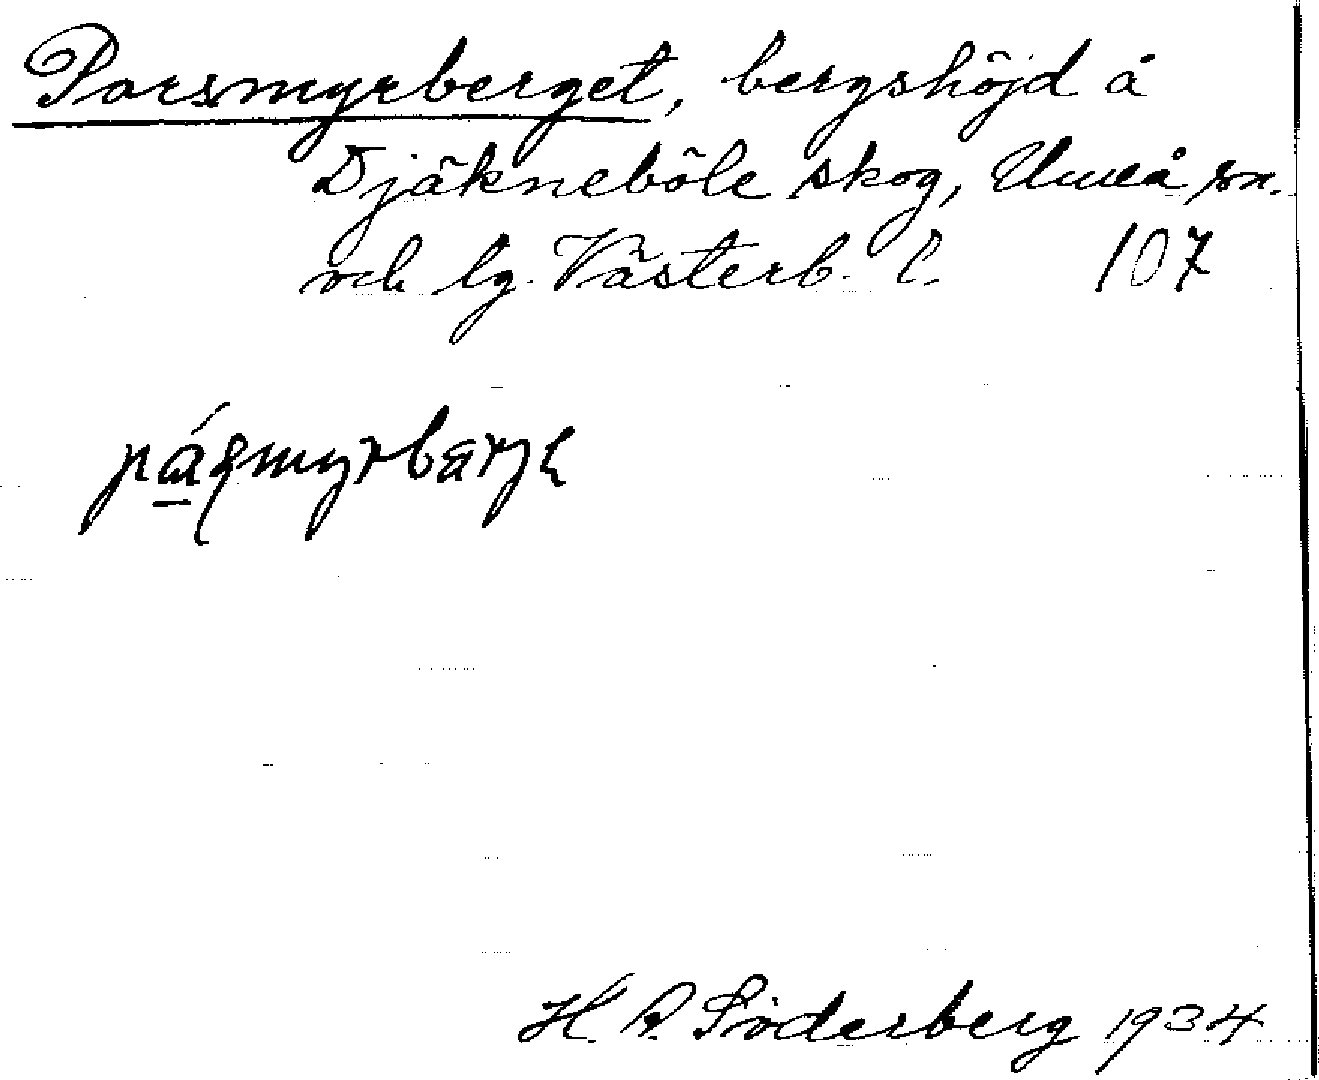 Porsmyrberget, bergshöjd å
Djäkneböle skog, Umeå sn.
och lg. Västerb. l. 107
H. D. Söderberg 1934